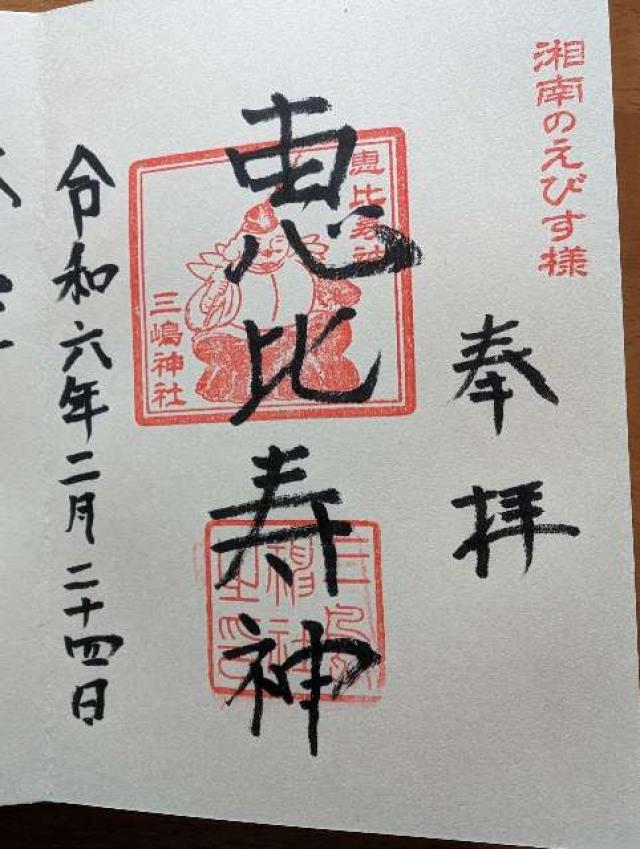 湘南のえびす様
奉拝
恵比寿神
恵比寿社
三嶋神社
令和六年二月二十四日